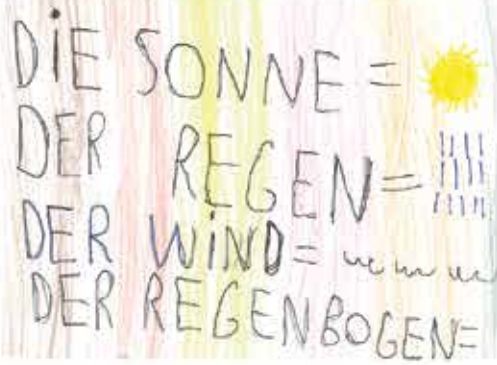 DiE SONNE =
DER REGEN =
DER WiND =
DER REGENBOGEN =